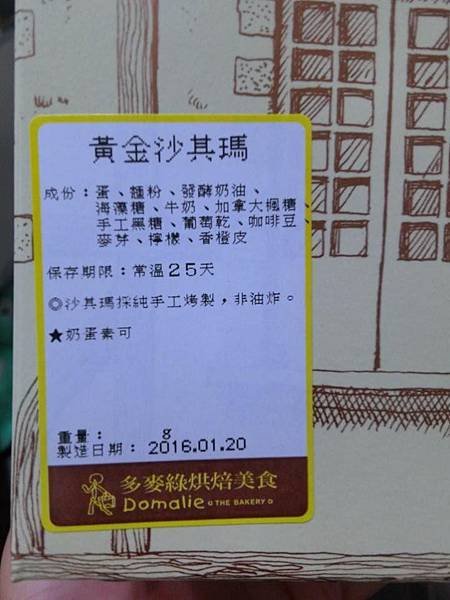 黃金沙其瑪
成份：蛋、麵粉、發酵奶油、
海藻糖、牛奶、加拿大楓糖、
手工黑糖、葡萄乾、咖啡豆、
麥芽、檸檬、香橙皮
保存期限：常溫25天
◎沙其瑪採純手工烤製，非油炸。
★奶蛋素可
重量： g
製造日期：2016.01.20
多麥綠烘焙美食
Domalie THE BAKERY